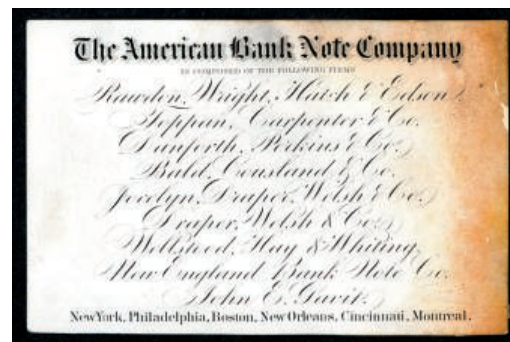 The American Bank Note Company
IS COMPOSED OF THE FOLLOWING FIRMS
Rawdon, Wright, Hatch & Edson.
Toppan, Carpenter & Co.
Danforth, Perkins & Co.
Bald, Cousland & Co.
Jocelyn, Draper, Welsh & Co.
Draper, Welsh & Co.
Wellstood, Hay & Whiting,
New England Bank Note Co.
John E. Gavit.
NewYork, Philadelphia, Boston, New Orleans, Cincinnati, Montreal.